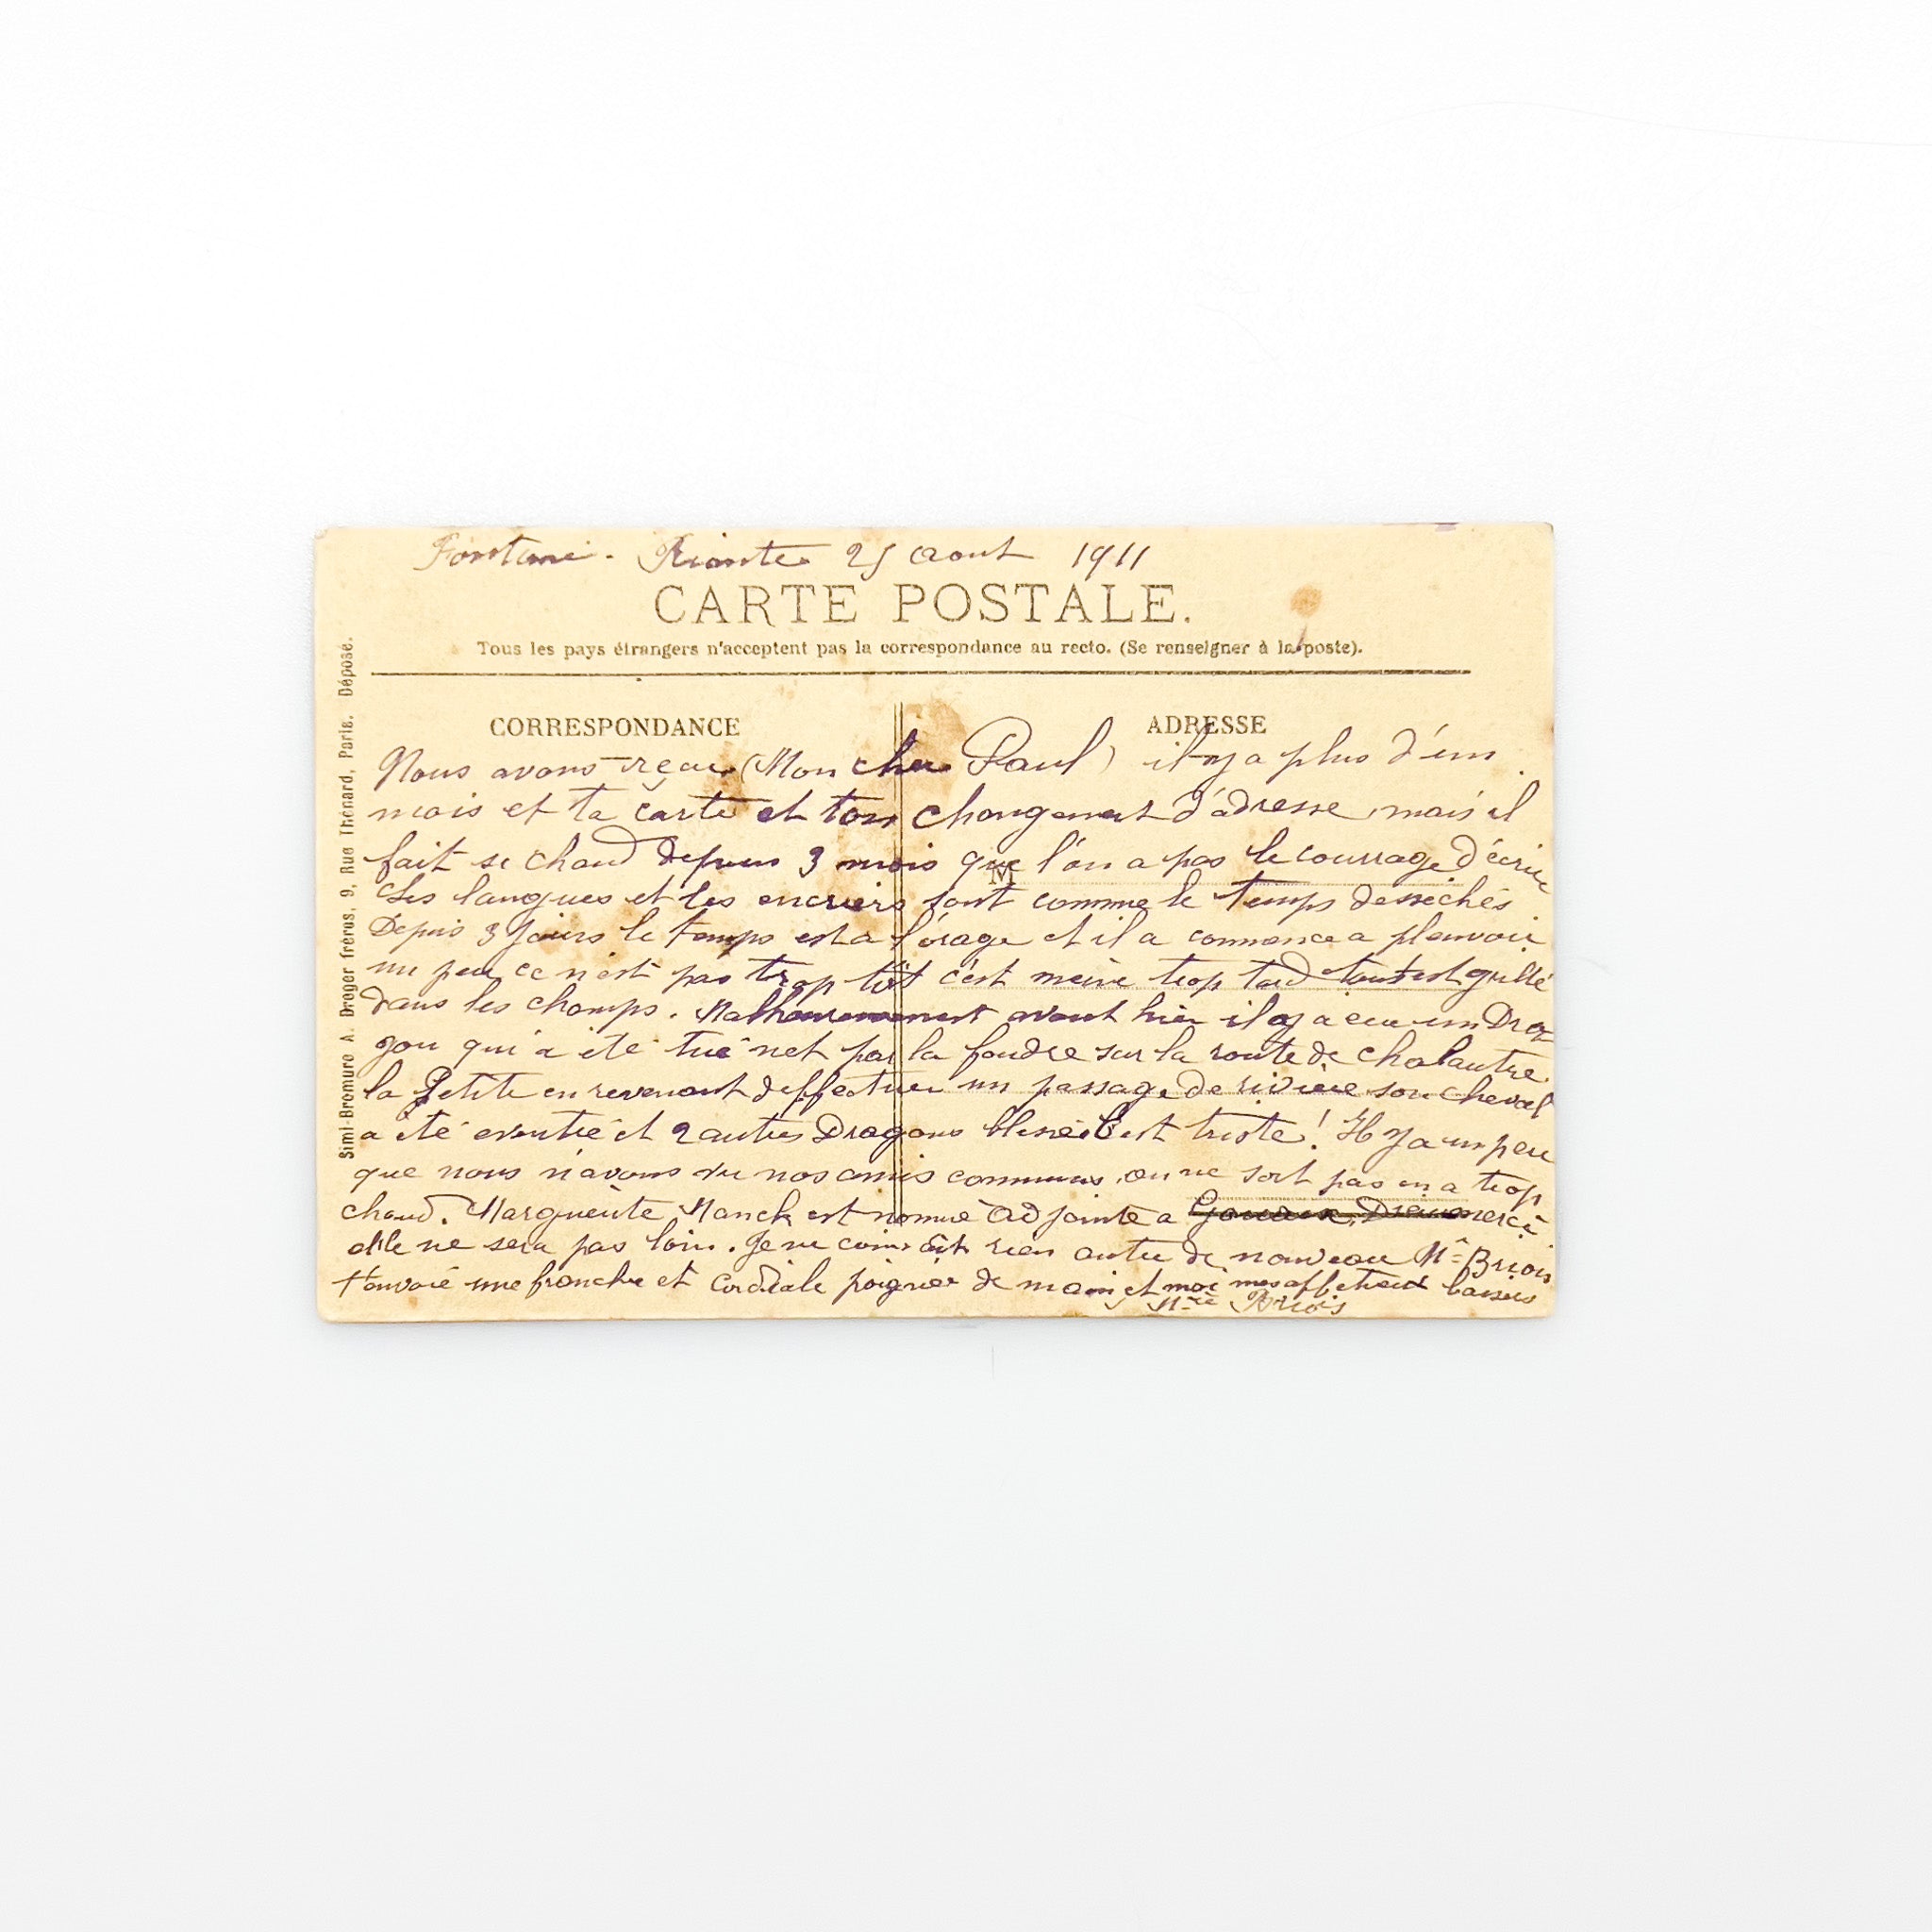 Fontaine-Riante 25 Aout 1911
CARTE POSTALE.
Tous les pays étrangers n'acceptent pas la correspondance au recto. (Se renseigner à la poste).
CORRESPONDANCE
ADRESSE
M
Nous avons reçu (Mon cher Paul) il y a plus d'un
mois et ta carte et ton changement d'adresse, mais il
fait si chaud depuis 3 mois que l'on a pas le courrage d'écrire
Les langues et les encriers sont comme le temps dessèchés
Depuis 3 jours le temps est a l'orage et il a commence a pleuvoir
un peu, ce n'est pas trop tôt c'est meme trop tard tout est grillé
dans les champs. Malheureusement avant hier il y a eu un Dra
gon qui a été tué net par la foudre sur la route de Chalautre
la Petite en revenant d'effectuer un passage de rivière son cheval
a été eventré et 2 autres Dragons blessés C'est triste! Il y a un peu
que nous n'avons vu nos amis communs, on ne sort pas on a trop
chaud. Marguerite Manck est nommé adjointe a
elle ne sera pas loin. Je ne connait rien autre de nouveau Mr Briois
t'envoie une franche et cordiale poignée de main et moi mes affectueux baisers
Mme Briois
Simi-Bromure A. Dreger frères, 9, Rue Thénard, Paris. Déposé.